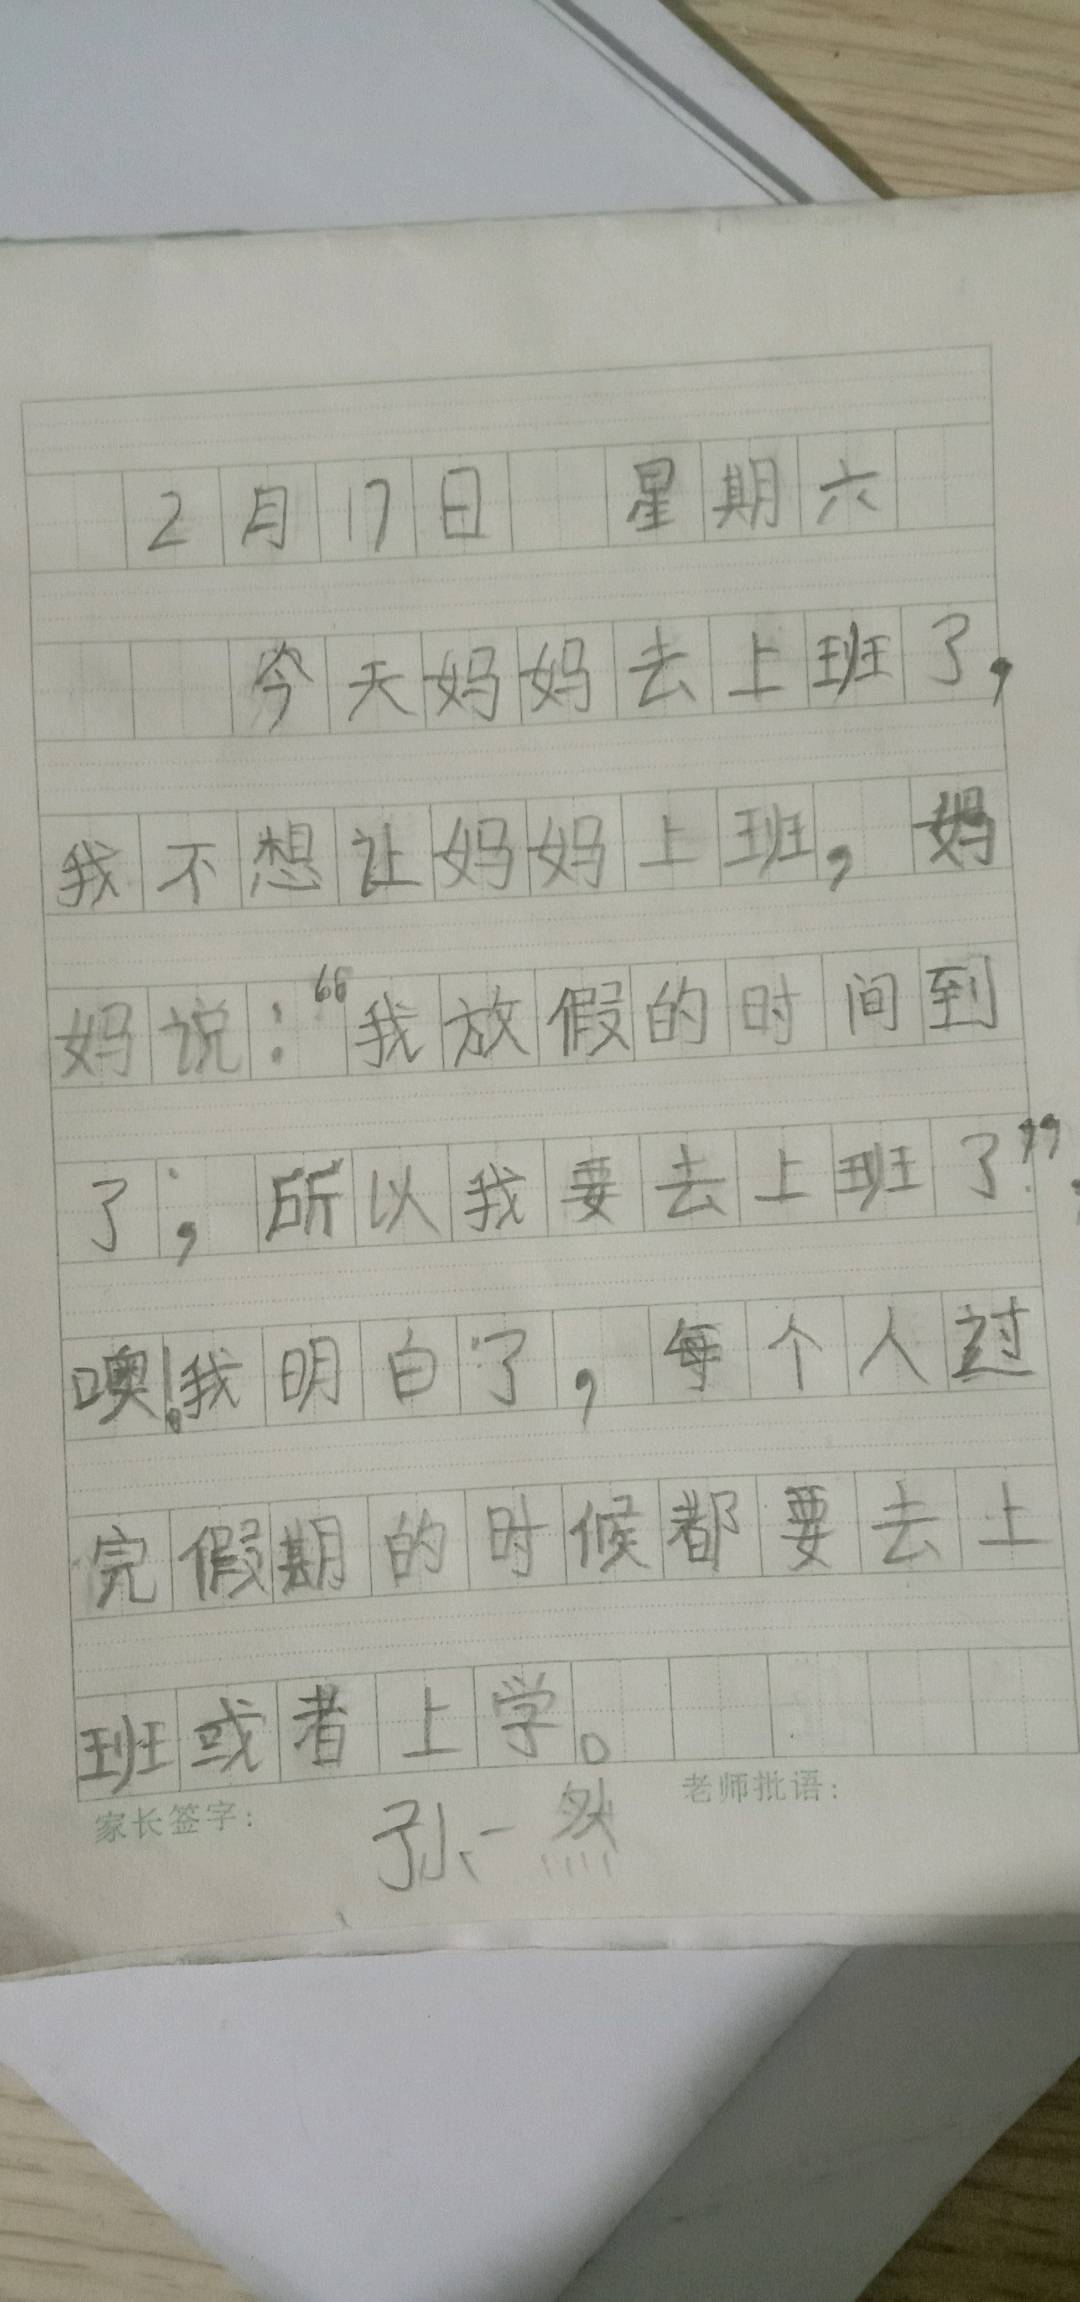 2月17日 星期六
今天妈妈去上班了,
我不想让妈妈上班,妈
妈说:“我放假的时间到
了;所以我要去上班了”.
噢!我明白了,每个人过
完假期的时候都要去上
班或者上学。
家长签字: 孙一然 老师批语: